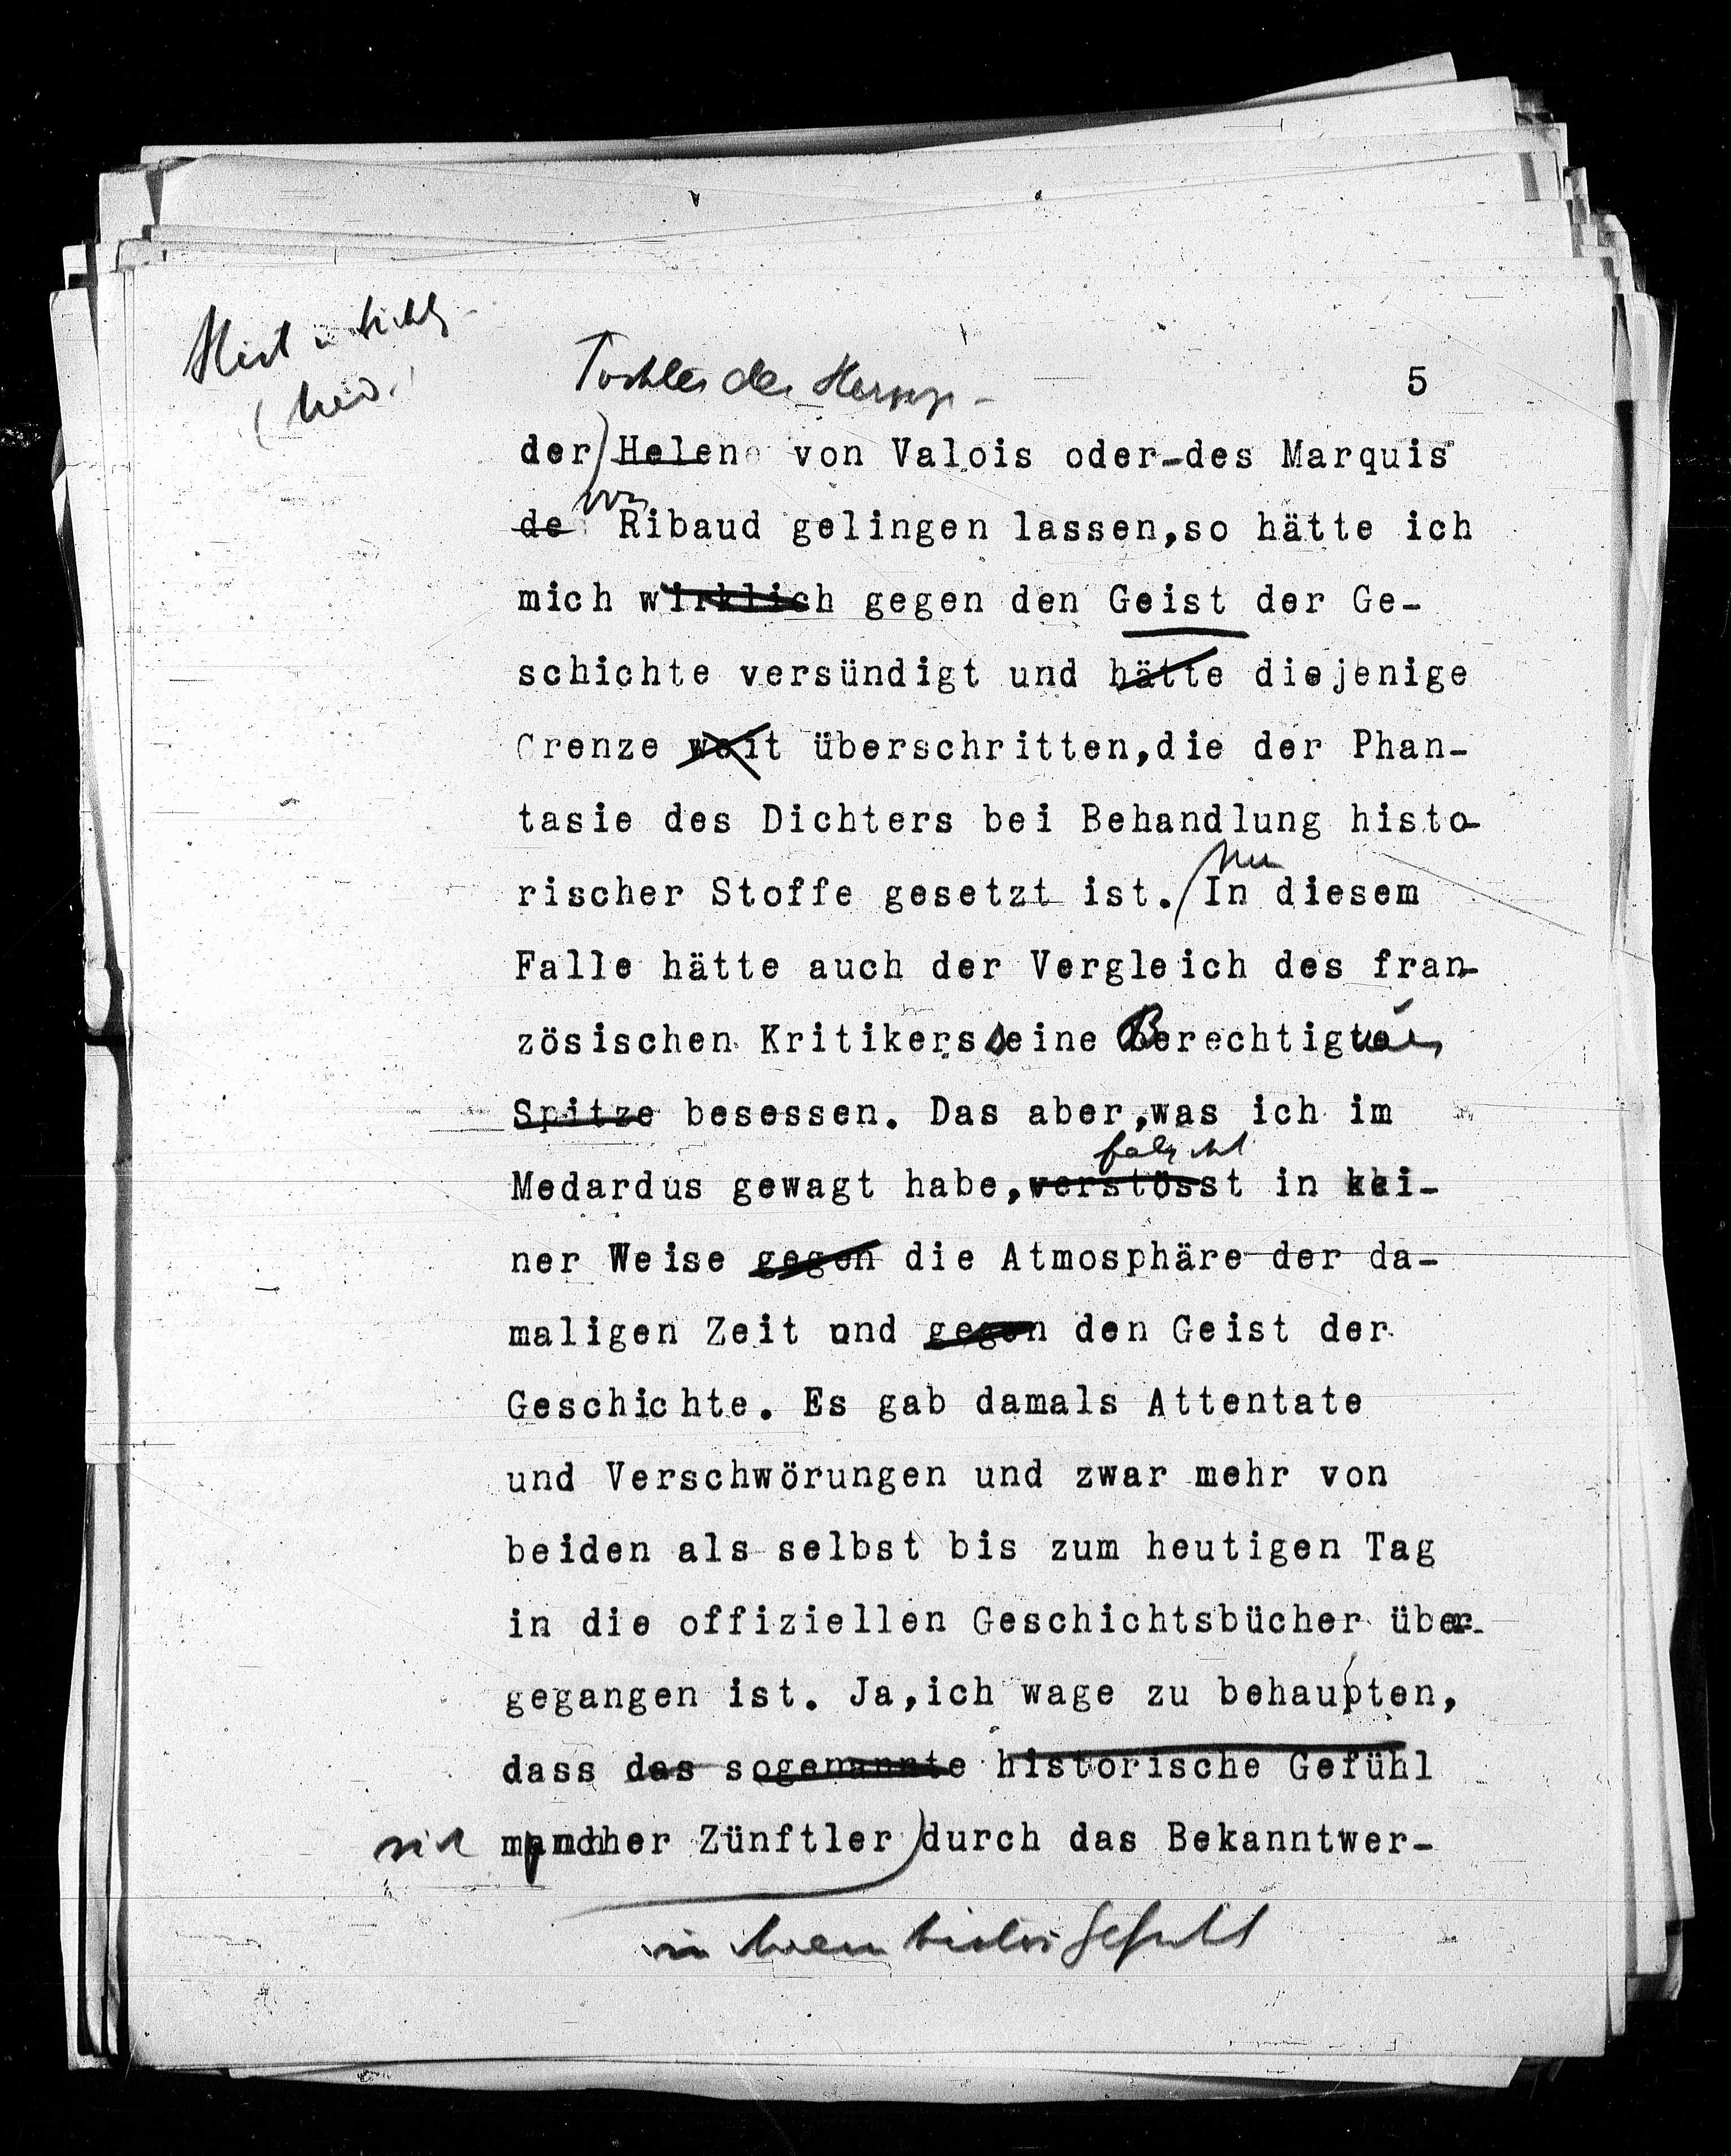 5
Tochter des Herzogs
der Helene von Valois oder des Marquis
von
de Ribaud gelingen lassen,so hätte ich
mich wirklich gegen den Geist der Ge-
schichte versündigt und hätte diejenige
Grenze weit überschritten,die der Phan-
tasie des Dichters bei Behandlung histo-
Nur
rischer Stoffe gesetzt ist. In diesem
Falle hätte auch der Vergleich des fran-
zösischen Kritikers seine Berechtigung
Spitze besessen. Das aber,was ich im
fälscht
Medardus gewagt habe,verstösst in kei-
ner Weise gegen die Atmosphäre der da-
maligen Zeit und gegen den Geist der
Geschichte. Es gab damals Attentate
und Verschwörungen und zwar mehr von
beiden als selbst bis zum heutigen Tag
in die offiziellen Geschichtsbücher über-
gegangen ist. Ja,ich wage zu behaupten,
dass das sogenannte historische Gefühl
sich mancher Zünftler durch das Bekanntwer-
in ihrem histor Gefühl